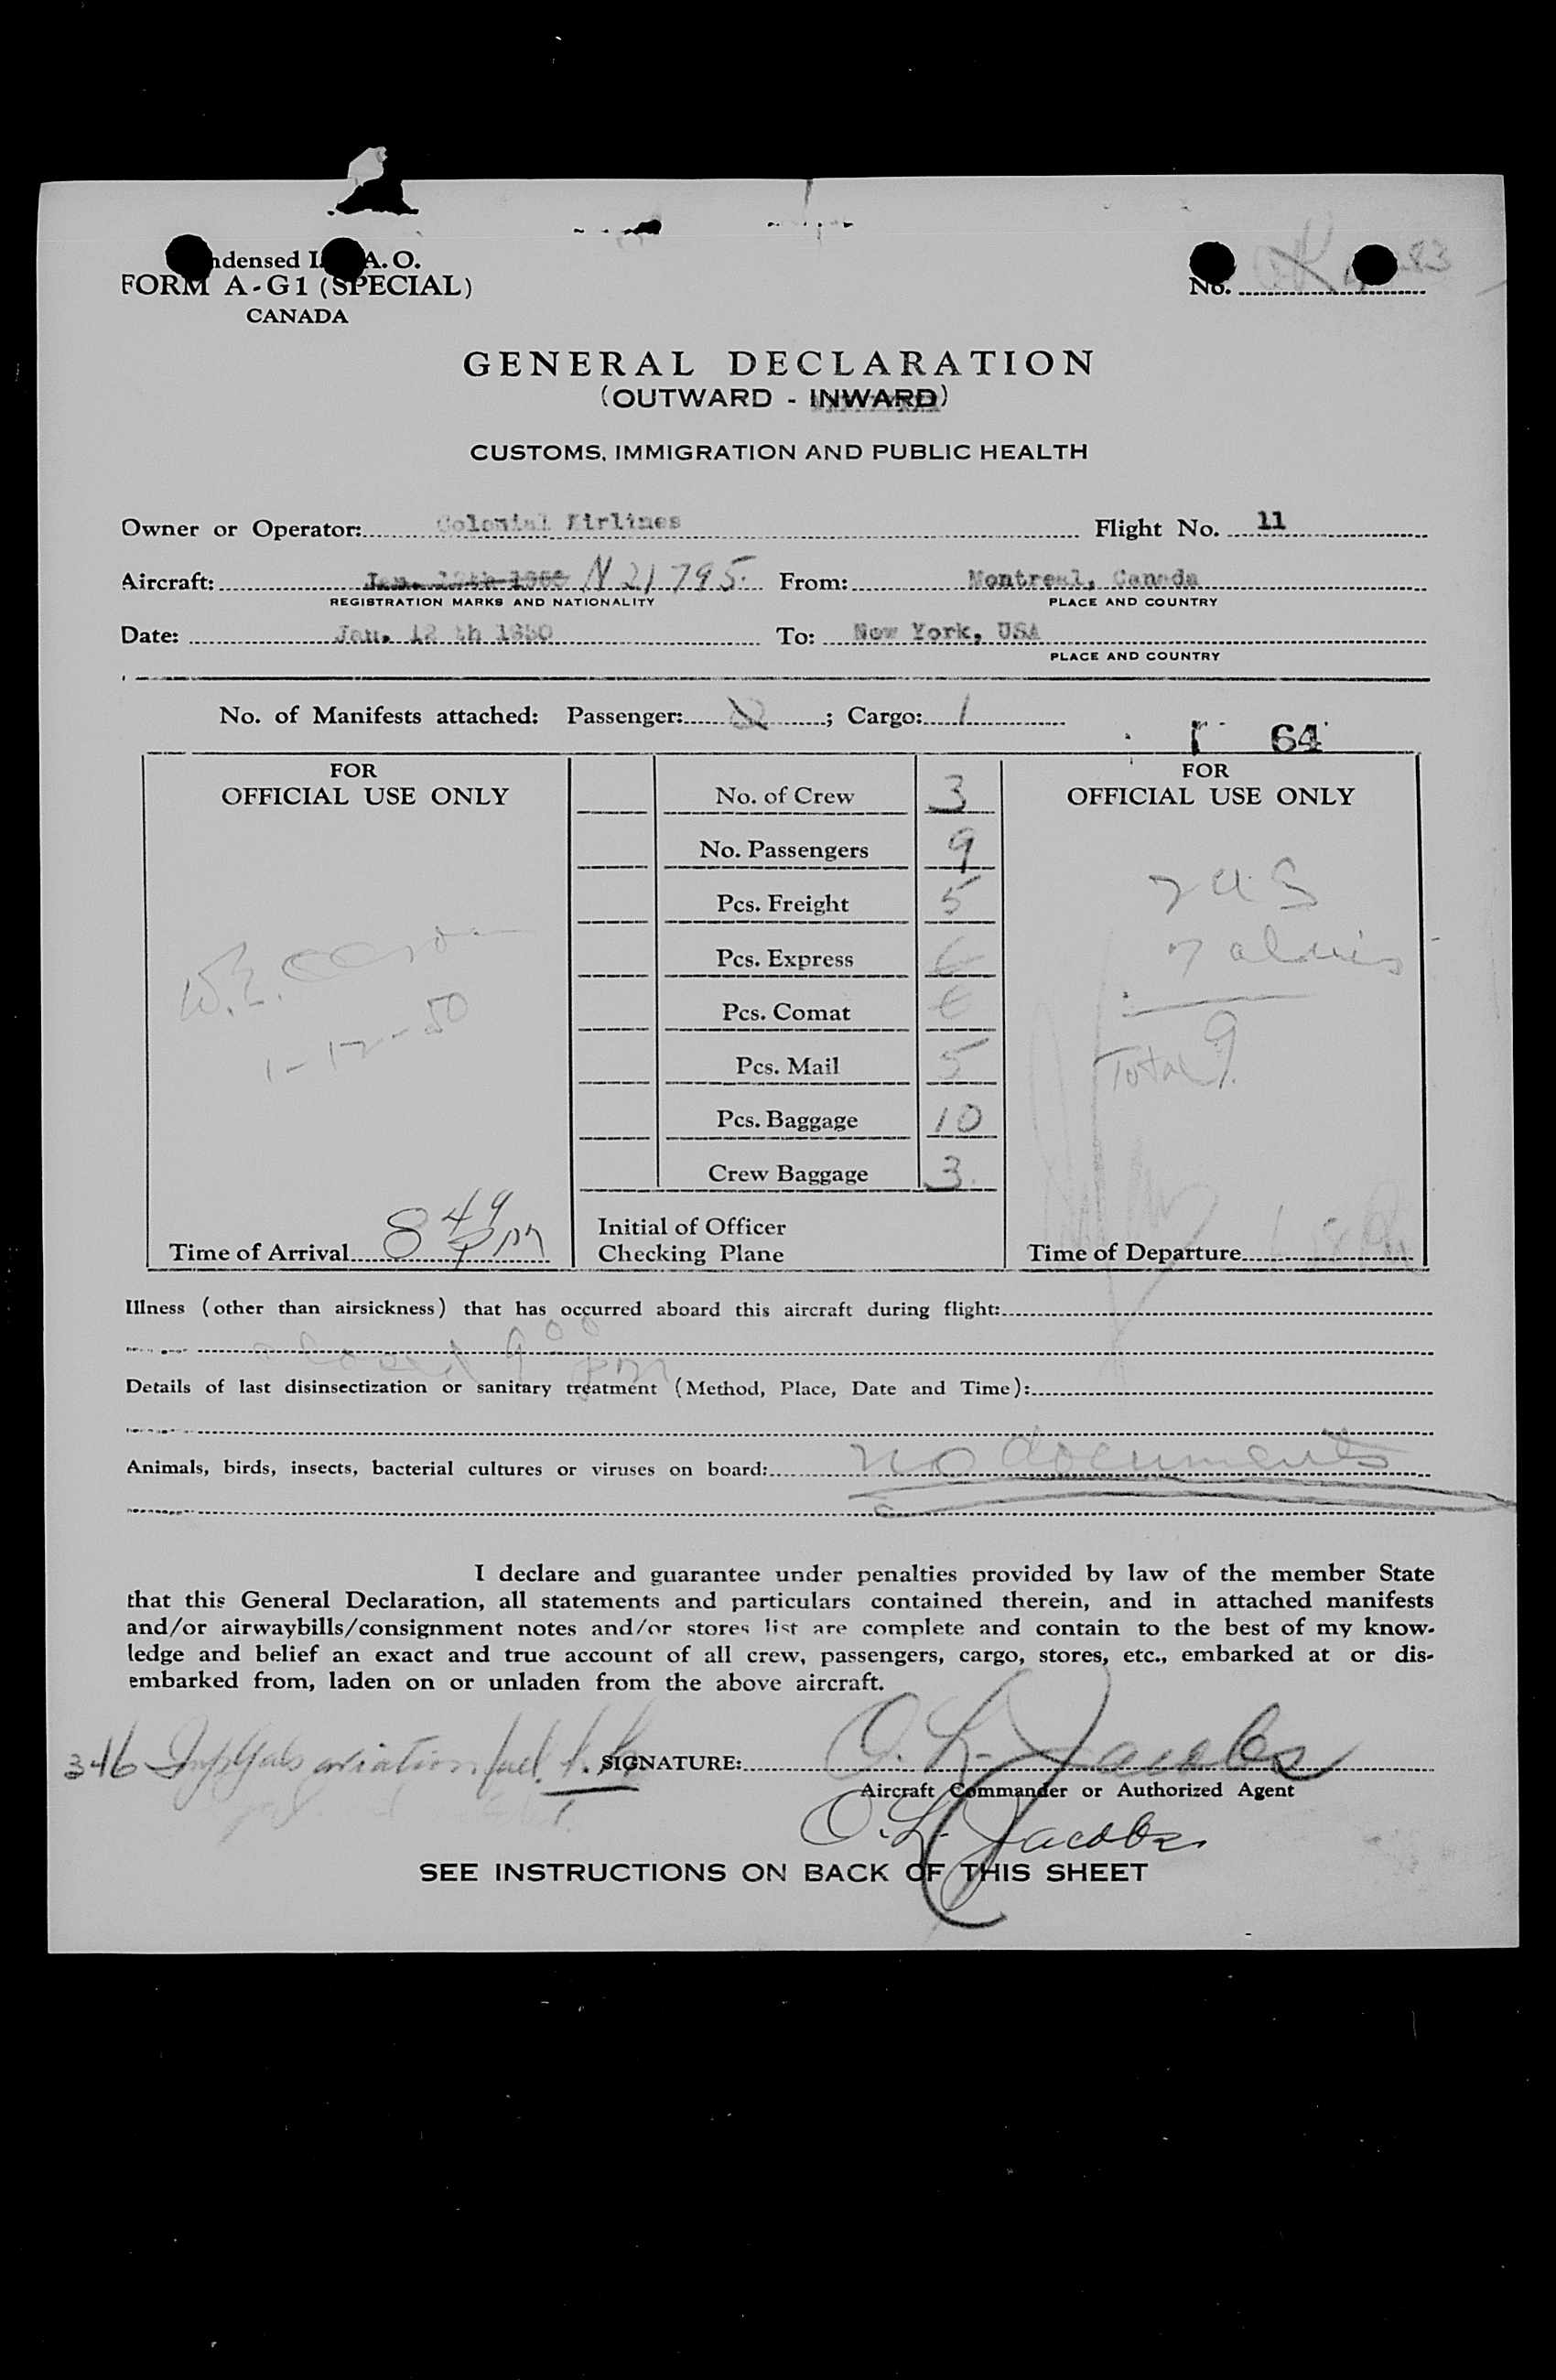 ndensed I. A. O.
FORM A-G1 (SPECIAL)
CANADA
No.
GENERAL DECLARATION
(OUTWARD - INWARD)
CUSTOMS, IMMIGRATION AND PUBLIC HEALTH
Owner or Operator: Colonial Airlines Flight No. 11
Aircraft: N 21795. From: Montreal, Canada
REGISTRATION MARKS AND NATIONALITY PLACE AND COUNTRY
Date: Jan. 12 th 1950 To: New York, USA
PLACE AND COUNTRY
No. of Manifests attached: Passenger: ; Cargo: 1
64
FOR
OFFICIAL USE ONLY
W.E.
1-12-50
Time of Arrival 8 49 pm
No. of Crew 3
No. Passengers 9
Pcs. Freight 5
Pcs. Express
Pcs. Comat
Pcs. Mail 5
Pcs. Baggage 10
Crew Baggage 3
Initial of Officer
Checking Plane
FOR
OFFICIAL USE ONLY
2 U.S
7 aliens
Total 9.
Time of Departure
Illness (other than airsickness) that has occurred aboard this aircraft during flight:
9 00 pm
Details of last disinsectization or sanitary treatment (Method, Place, Date and Time):
Animals, birds, insects, bacterial cultures or viruses on board: no documents
I declare and guarantee under penalties provided by law of the member State
that this General Declaration, all statements and particulars contained therein, and in attached manifests
and/or airwaybills/consignment notes and/or stores list are complete and contain to the best of my know-
ledge and belief an exact and true account of all crew, passengers, cargo, stores, etc., embarked at or dis-
embarked from, laden on or unladen from the above aircraft.
346 Imp Gals aviation fuel SIGNATURE: O. L. Jacobs
Aircraft Commander or Authorized Agent
O. L. Jacobs
SEE INSTRUCTIONS ON BACK OF THIS SHEET